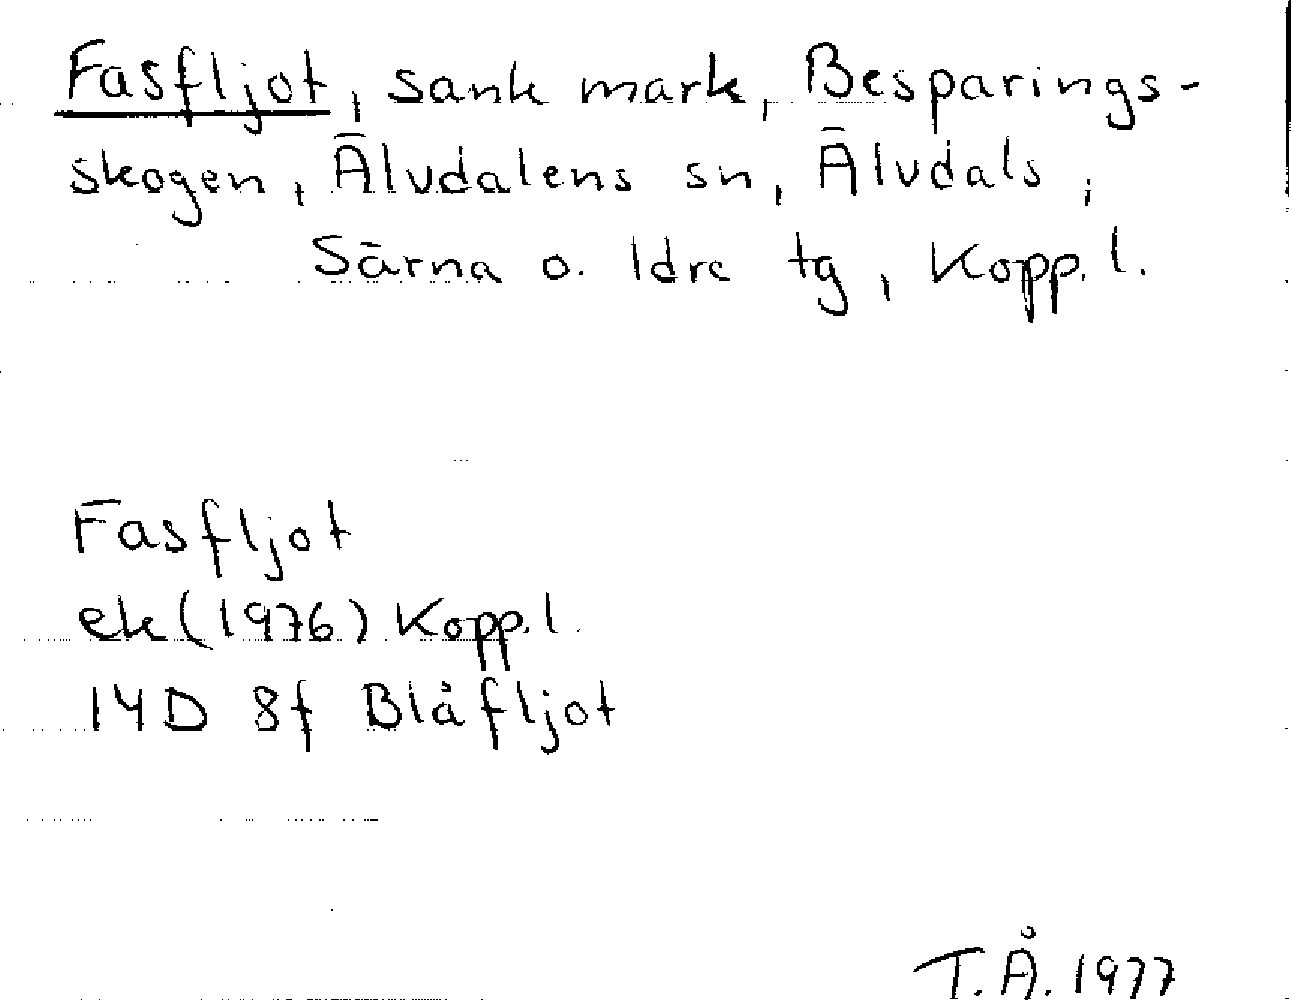 Fasfljot, sank mark, Besparings-
skogen, Älvdalens sn, Älvdals,
Särna o. Idre tg, Kopp. l.
Fasfljot
ek (1976) Kopp. l.
14D 8f Blåfljot
T.Å. 1977